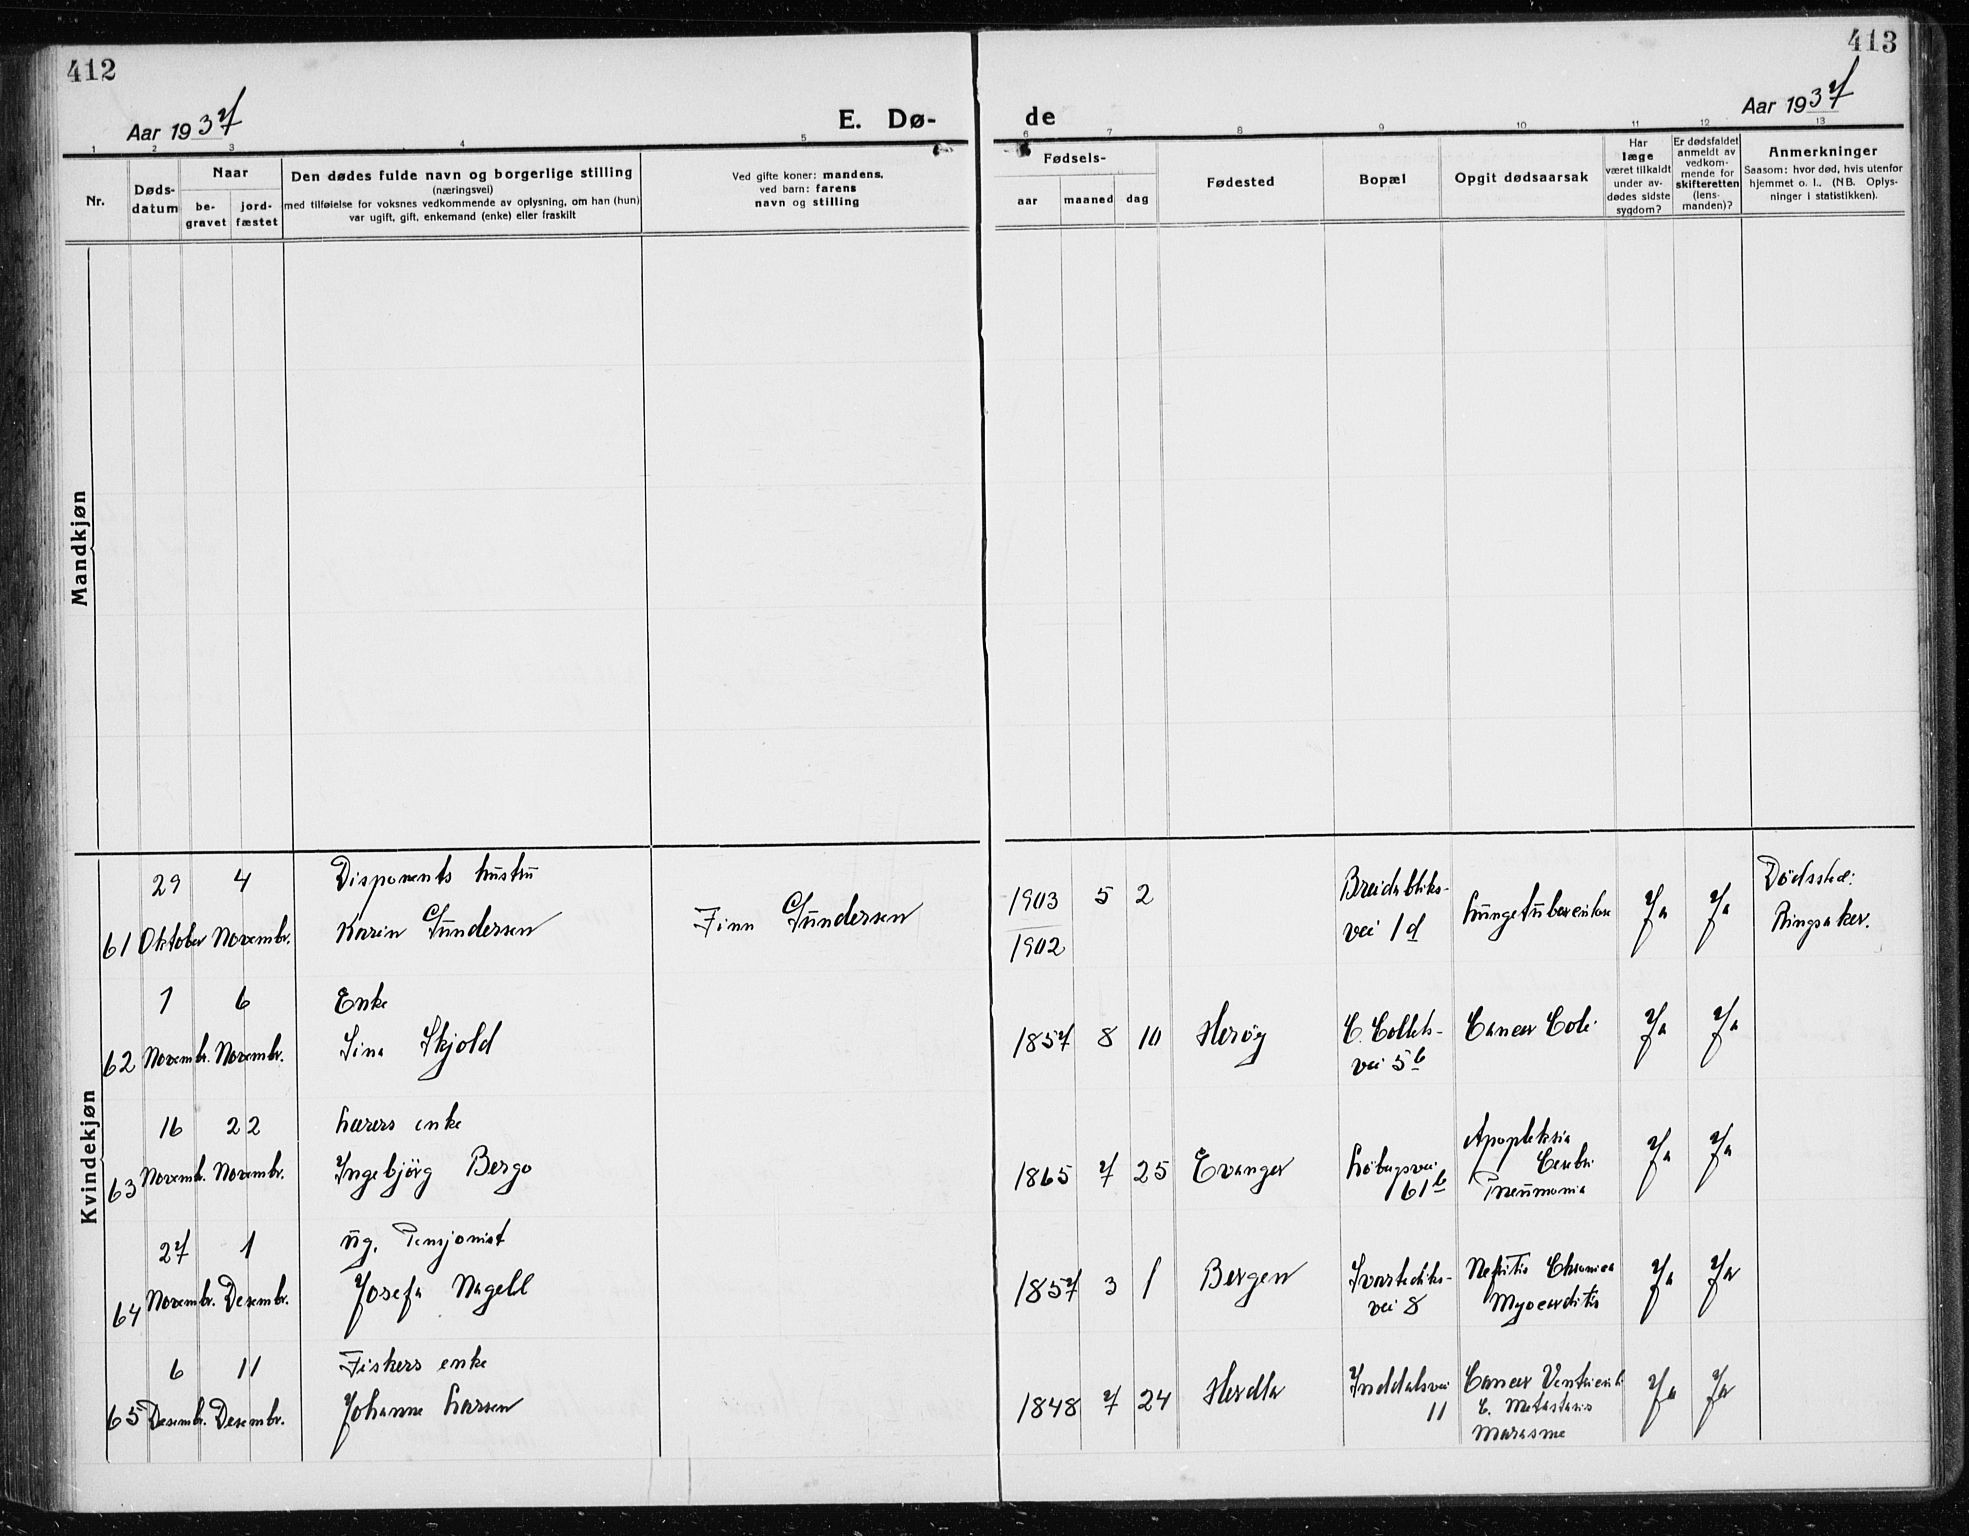 412
413
Aar 1937
E. Dø-
de
Aar 1937
1 2 3 4 5 6 7 8 9 10 11 12 13
Nr.
Døds-
datum
Naar
be-
gravet
jord-
fæstet
Den dødes fulde navn og borgerlige stilling
(næringsvei)
med tilføielse for voksnes vedkommende av oplysning, om han (hun)
var ugift, gift, enkemand (enke) eller fraskilt
Ved gifte koner: mandens,
ved barn: farens
navn og stilling
Fødsels-
aar maaned dag
Fødested
Bopæl
Opgit dødsaarsak
Har
læge
været tilkaldt
under av-
dødes sidste
sygdom?
Er dødsfaldet
anmeldt av
vedkom-
mende for
skifteretten
(lens-
manden)?
Anmerkninger
Saasom: hvor død, hvis utenfor
hjemmet o. l., (NB. Oplys-
ninger i statistikken).
Mandkjøn
Kvindekjøn
29 4 Disponents hustru
61 Oktober Novembr. Karin Gundersen Finn Gundersen
1903 5 2
1902
Breidabliks-
vei 1d
Lungetuberculose
Ja Ja
Dødssted:
Ringsaker.
1 6 Enke
62 Novembr. Novembr. Sina Skjold
1857 8 10 Herøy
C. Collets-
vei 5b
Cancer Coli
Ja Ja
16 22 Lærers enke
63 Novemb. Novembr. Ingebjörg Bergo
1865 7 25 Evanger
Löbergsvei
61b
Apopleksia
Cerebri
Pneumonia
Ja Ja
27 1 ug. Pensjonist
64 Novembr. Desembr. Josefa Nagell
1857 3 1 Bergen
Svartediks-
vei 8
Nefritis Chronica
Myocarditis
Ja Ja
6 11 Fiskers enke
65 Desembr. Desembr. Johanne Larsen
1848 7 24 Herdla
Inddalsvei
11
Cancer Ventriculi
C. Metastasis
Marasme
Ja Ja